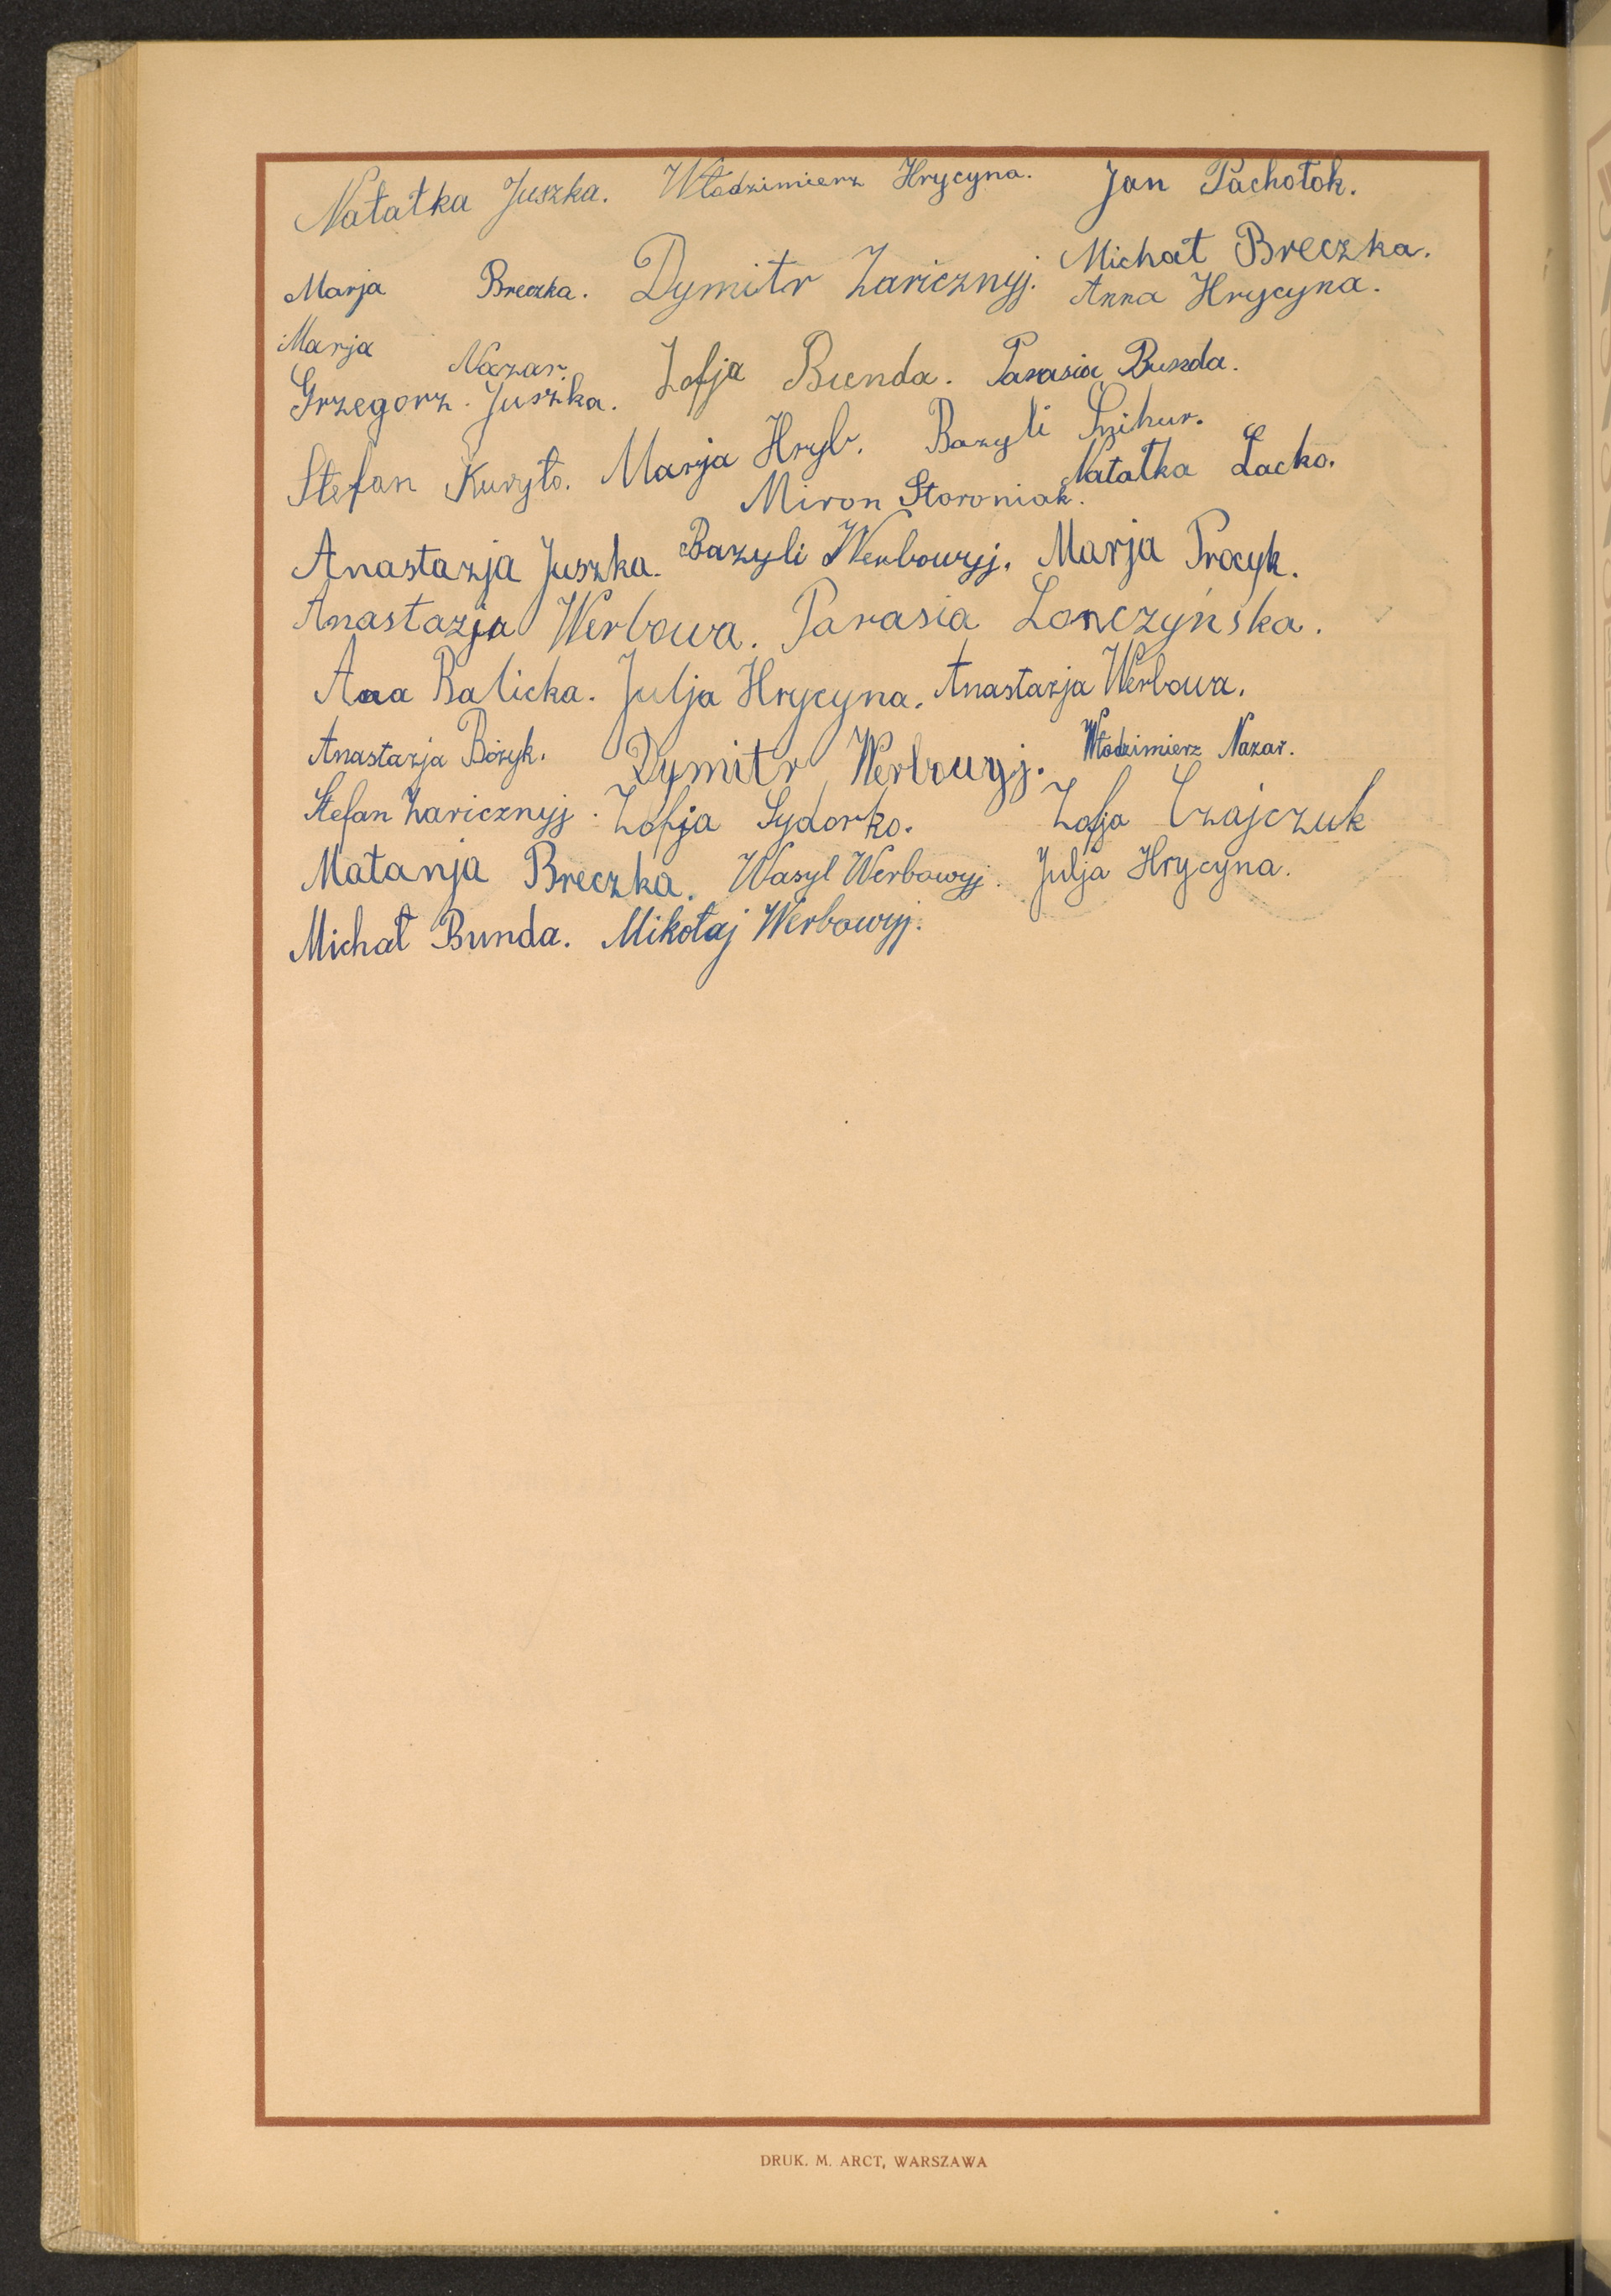 Natałka Juszka. Włodzimierz Hrycyna. Jan Pachołok.
Marja Breczka. Dymitr Zaricznyj. Michał Breczka.
Anna Hrycyna.
Marja Nazar. Zofja Bunda. Parasia Bunda.
Grzegorz Juszka.
Stefan Kuryło. Marja Hryb. Bazyli Śnihur.
Miron Storoniak. Natałka Łacko.
Anastazja Juszka. Bazyli Werbowyj. Marja Procyk.
Anastazja Werbowa. Parasia Lonczyńska.
Anna Balicka. Julja Hrycyna. Anastazja Werbowa.
Anastazja Bożyk. Dymitr Werbowyj. Włodzimierz Nazar.
Stefan Zaricznyj. Zofja Sydorko. Zofja Czajczuk
Małanja Breczka. Wasyl Werbowyj. Julja Hrycyna.
Michał Bunda. Mikołaj Werbowyj.
DRUK. M. ARCT, WARSZAWA